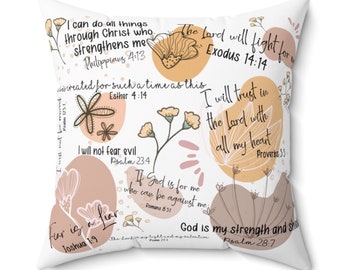 I can do all things
through Christ who
strengthens me
Philippians 4:13
The Lord will fight for
Exodus 14:14
created for such a time as this
Esther 4:14
I will trust in
the Lord with
all my heart
Proverbs 3:5
I will not fear evil
Psalm 23:4
If God is for me
who can be against me
Romans 8:31
Fear is a Liar
Joshua 1:9
God is my strength and
Psalm 28:7